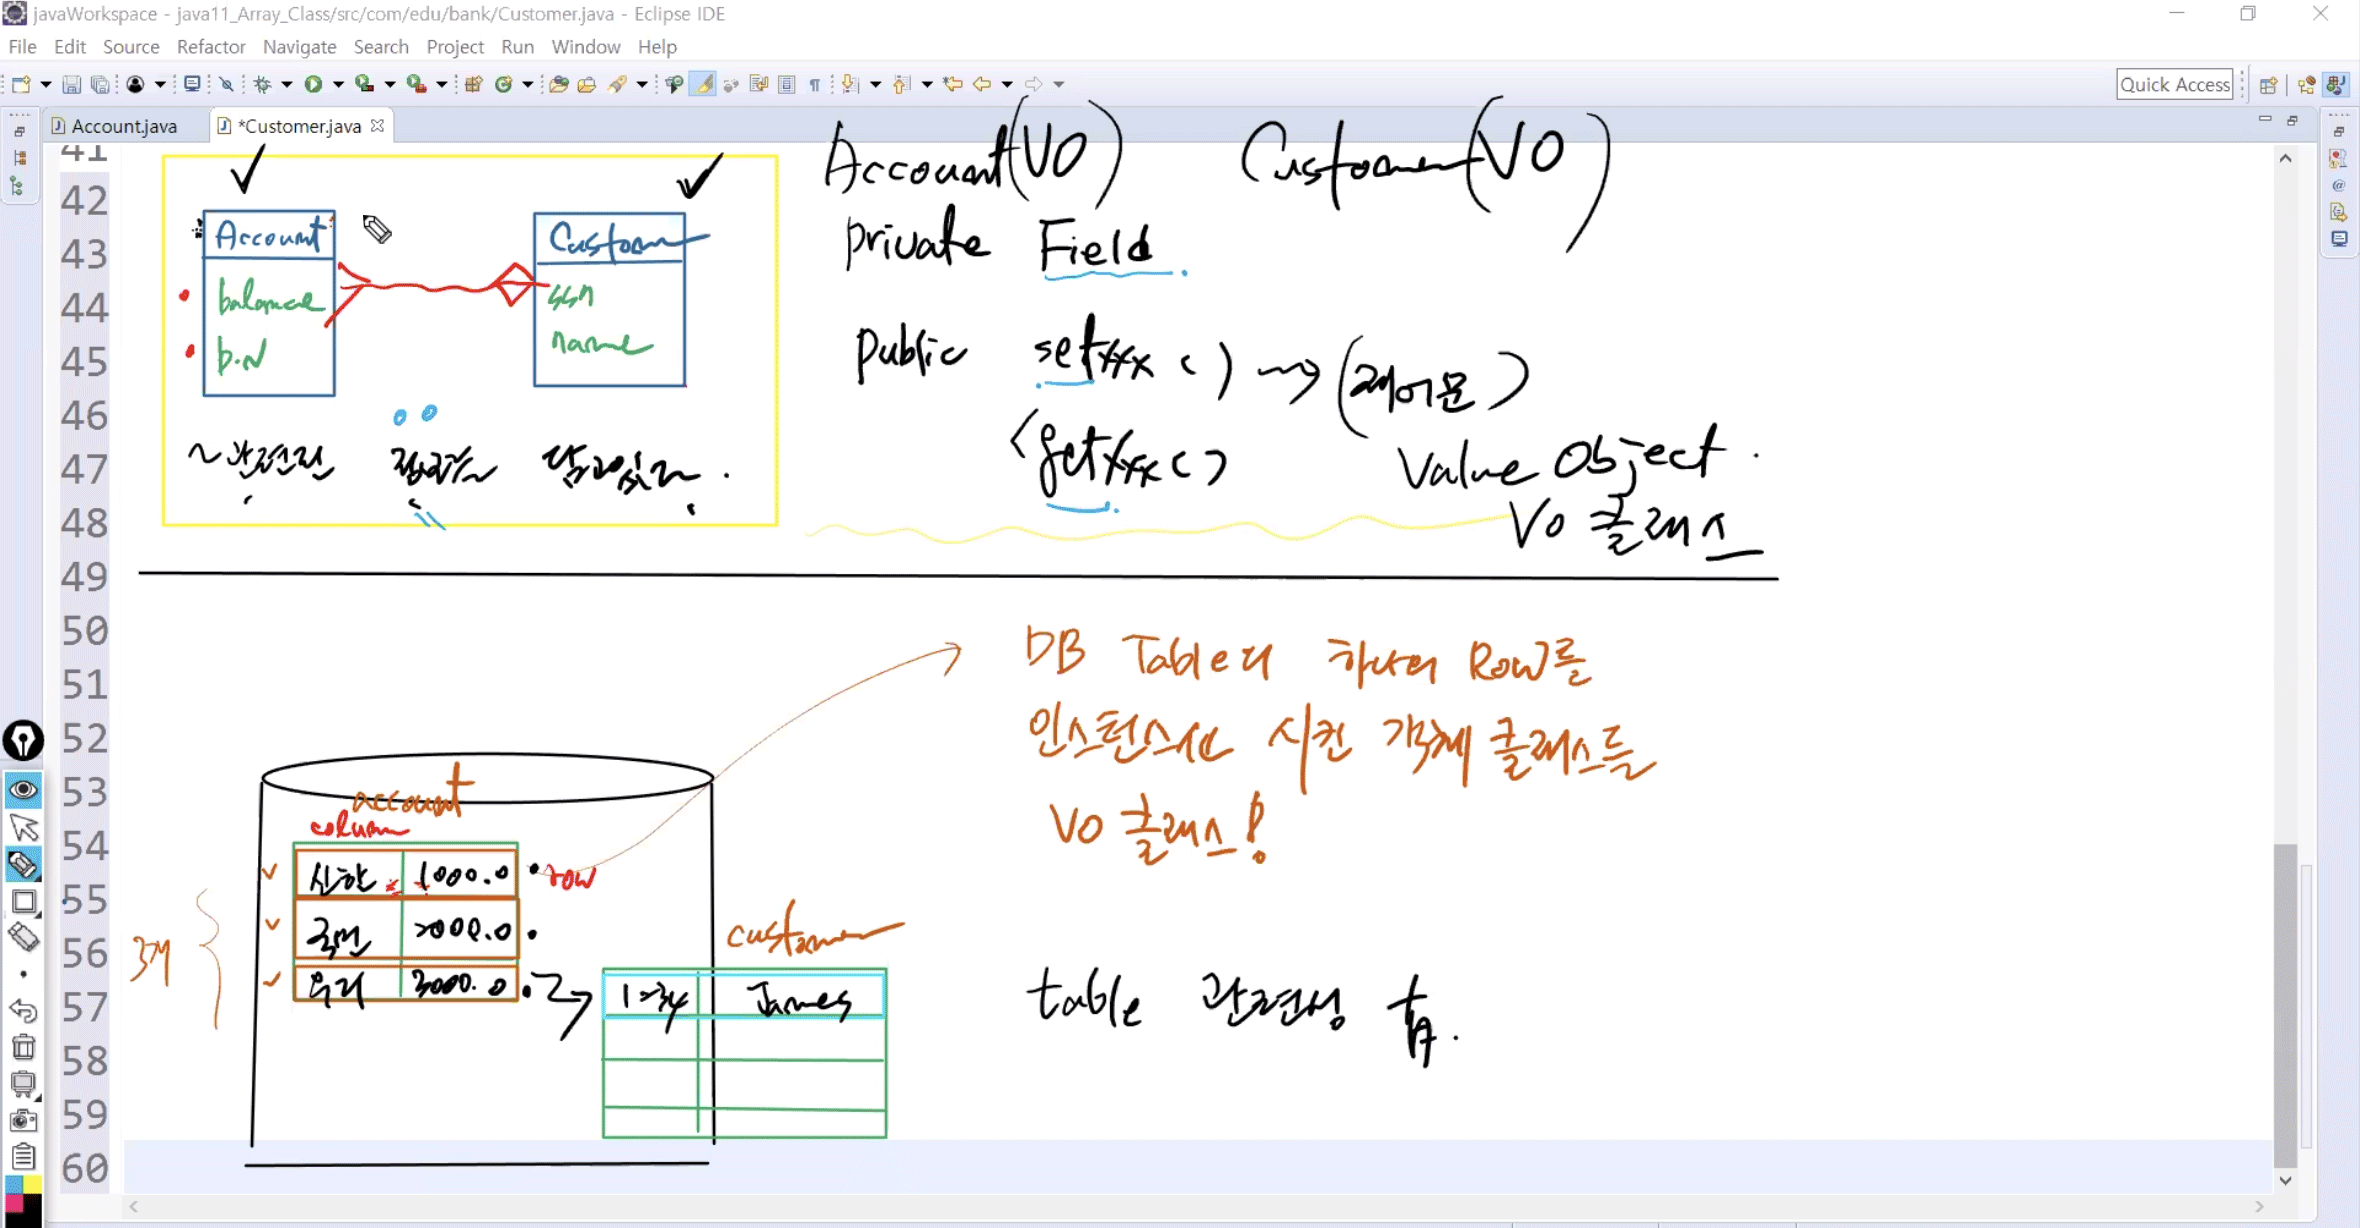 javaWorkspace - java11_Array_Class/src/com/edu/bank/Customer.java - Eclipse IDE
File Edit Source Refactor Navigate Search Project Run Window Help
Quick Access
Account.java *Customer.java
41
42
43
44
45
46
47
48
49
50
51
52
53
54
55
56
57
58
59
60
Account
balance
b.N
Custom
ssn
name
Account(VO) Customer(VO)
private Field
public setxxx() (제어문)
getxxx()
Value Object.
VO 클래스
DB Table의 하나의 Row를
인스턴스화 시킨 객체 클래스를
VO 클래스!
account
column
신한 1000.0 row
국민 2000.0
우리 3000.0
3개
customer
1234 James
table 관련성 有.